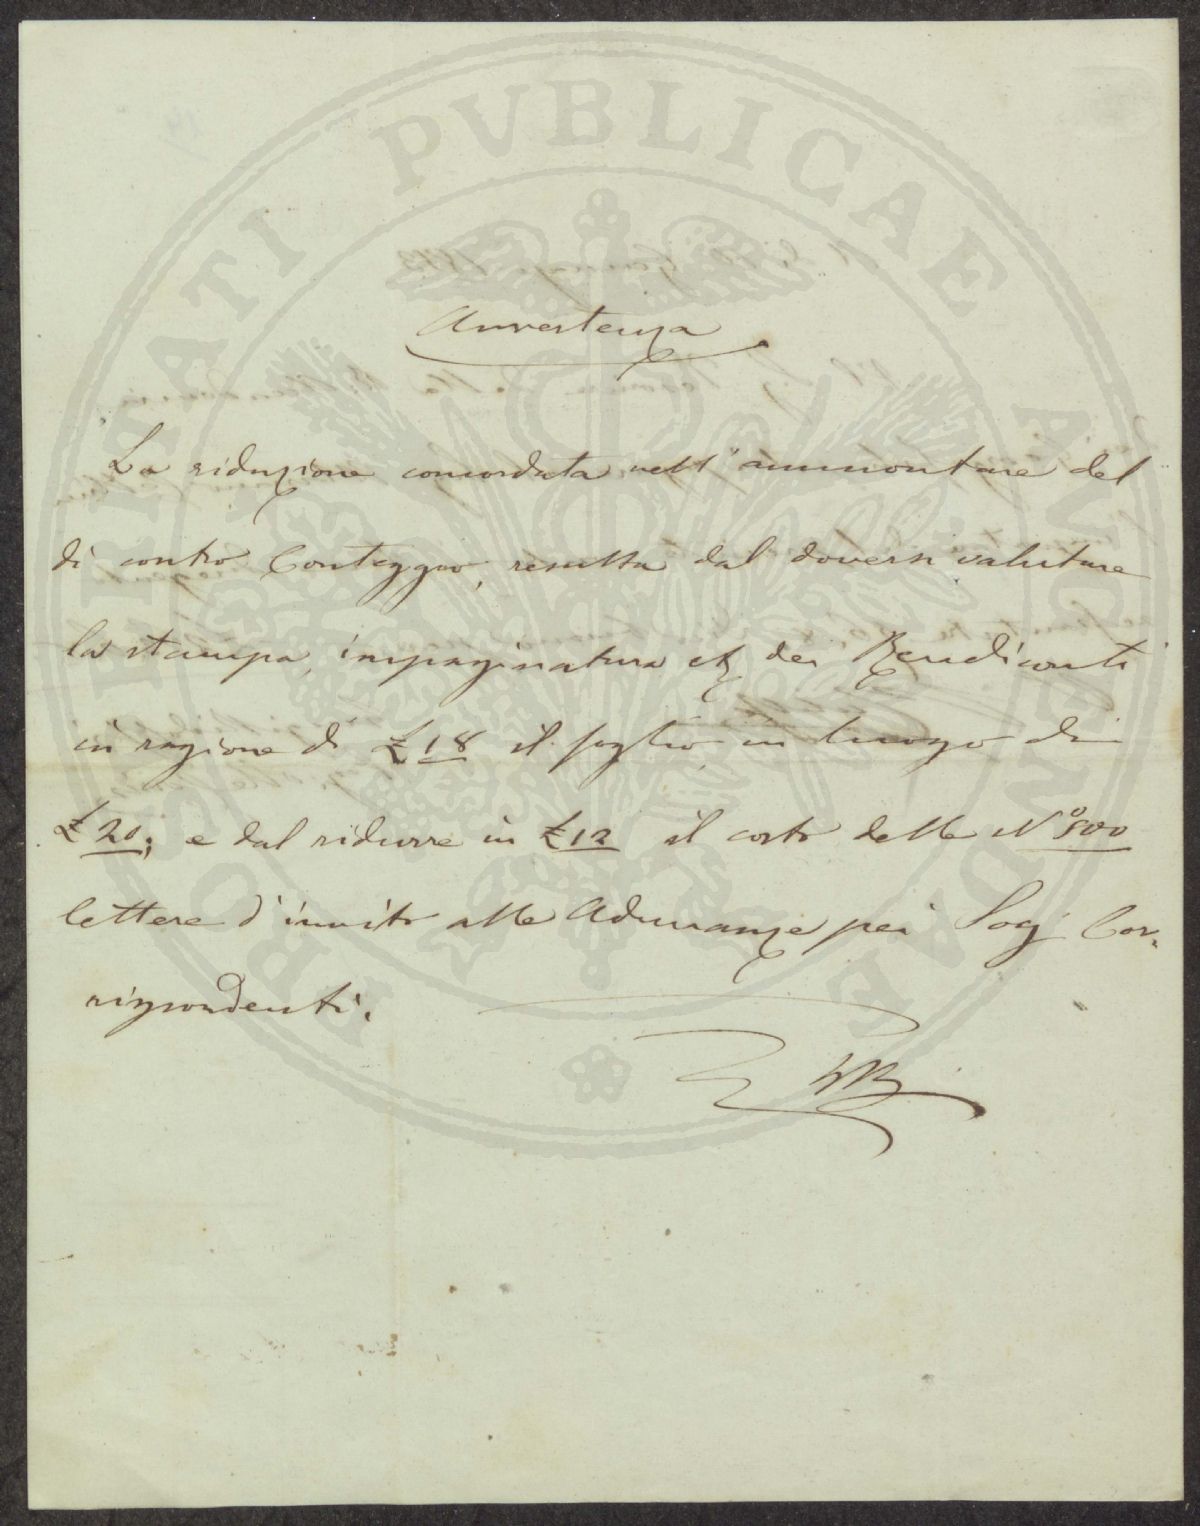 PROSPERITATI PVBLICAE AVGENDAE
Avvertenza
La riduzione concordata nell'ammontare del
di contro Conteggio, resulta dal doversi valutare
la stampa, impaginatura etc dei Rendiconti
in ragione di £ 18 il foglio in luogo di
£ 20; e dal ridurre in £ 12 il costo delle No 500
lettere d'invito alle Adunanze pei Socj Cor-
rispondenti.